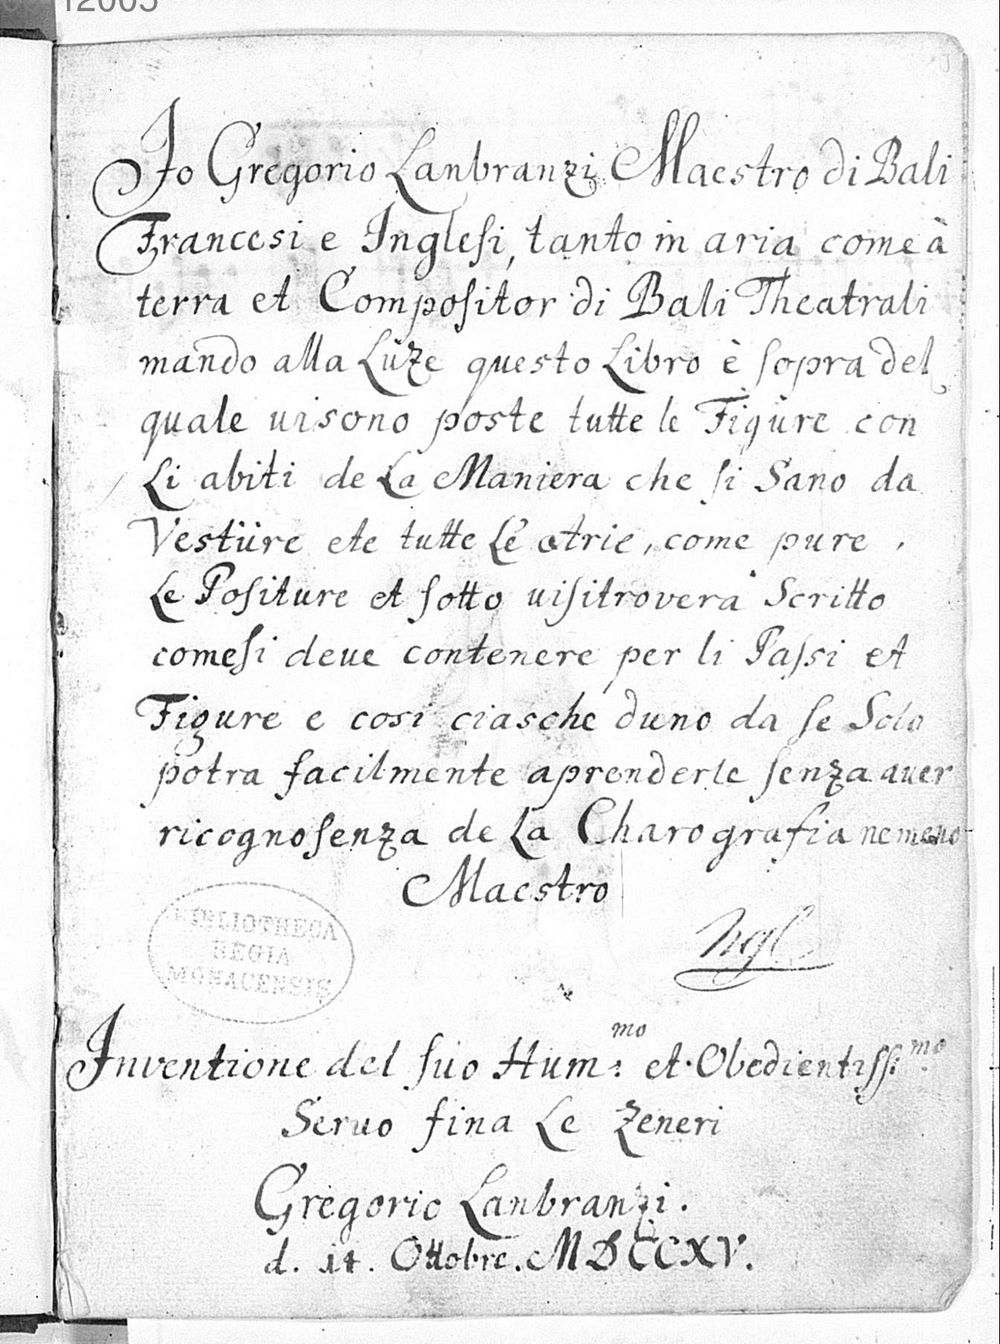 12005
Jo Gregorio Lanbranzi Maestro di Bali
Francesi e Inglesi, tanto in aria come à
terra et Compositor di Bali Theatrali
mando alla Lùze questo Libro è sopra del
quale uisono poste tutte le Figùre con
Li abiti de La Maniera che si Sano da
Vestüre ete tutte Le atrie, come pure,
Le Positure et sotto uisitroverà Scritto
comesi deue contenere per li Passi et
Figure e cosi ciasche duno da se Solo
potra facilmente aprenderle senza auer
ricognosenza de La Charografia nemeno
Maestro
BIBLIOTHECA
REGIA
MONACENSIS
Inventione del suo Hum:mo et Obedientissi:mo
Seruo fina Le Zeneri
Gregorio Lanbranzi.
d. 14. Ottobre. MDCCXV.